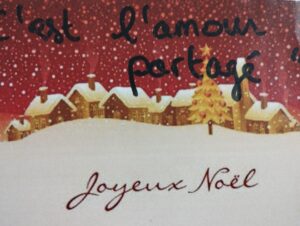 c'est l'amour
partagé "
Joyeux Noël